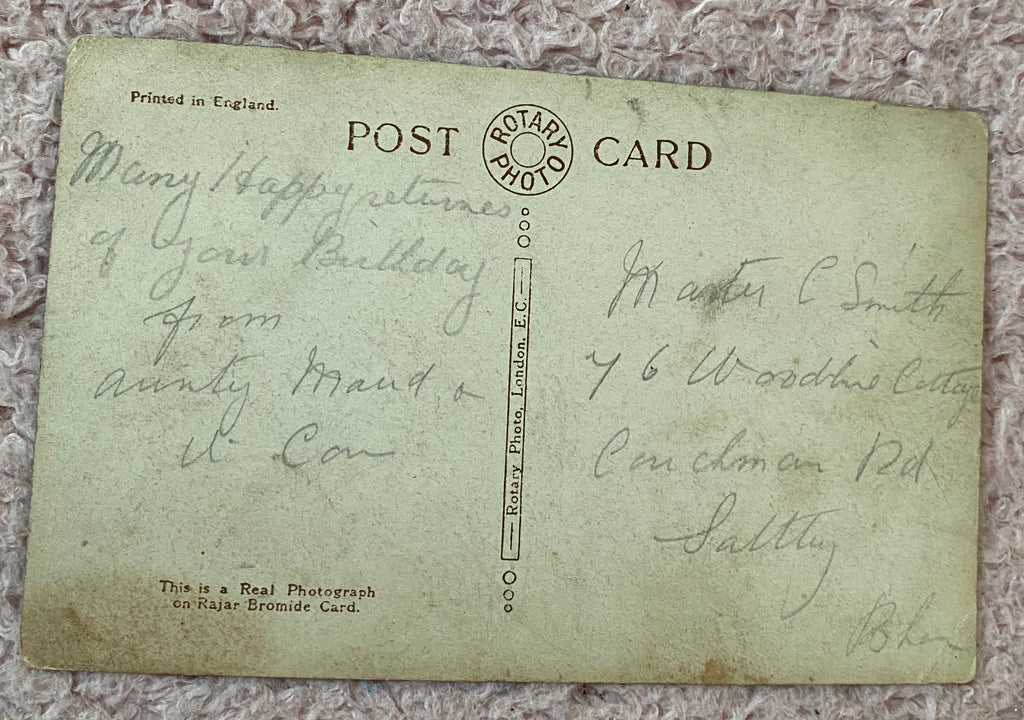 Printed in England.
POST CARD
ROTARY PHOTO
Many Happy returns
of your Birthday
from
aunty Maud &
U Con
Rotary Photo, London, E.C.
Master C Smith
76 Woodbine Cottage
Couchman Rd
Saltley
Bham
This is a Real Photograph
on Rajar Bromide Card.